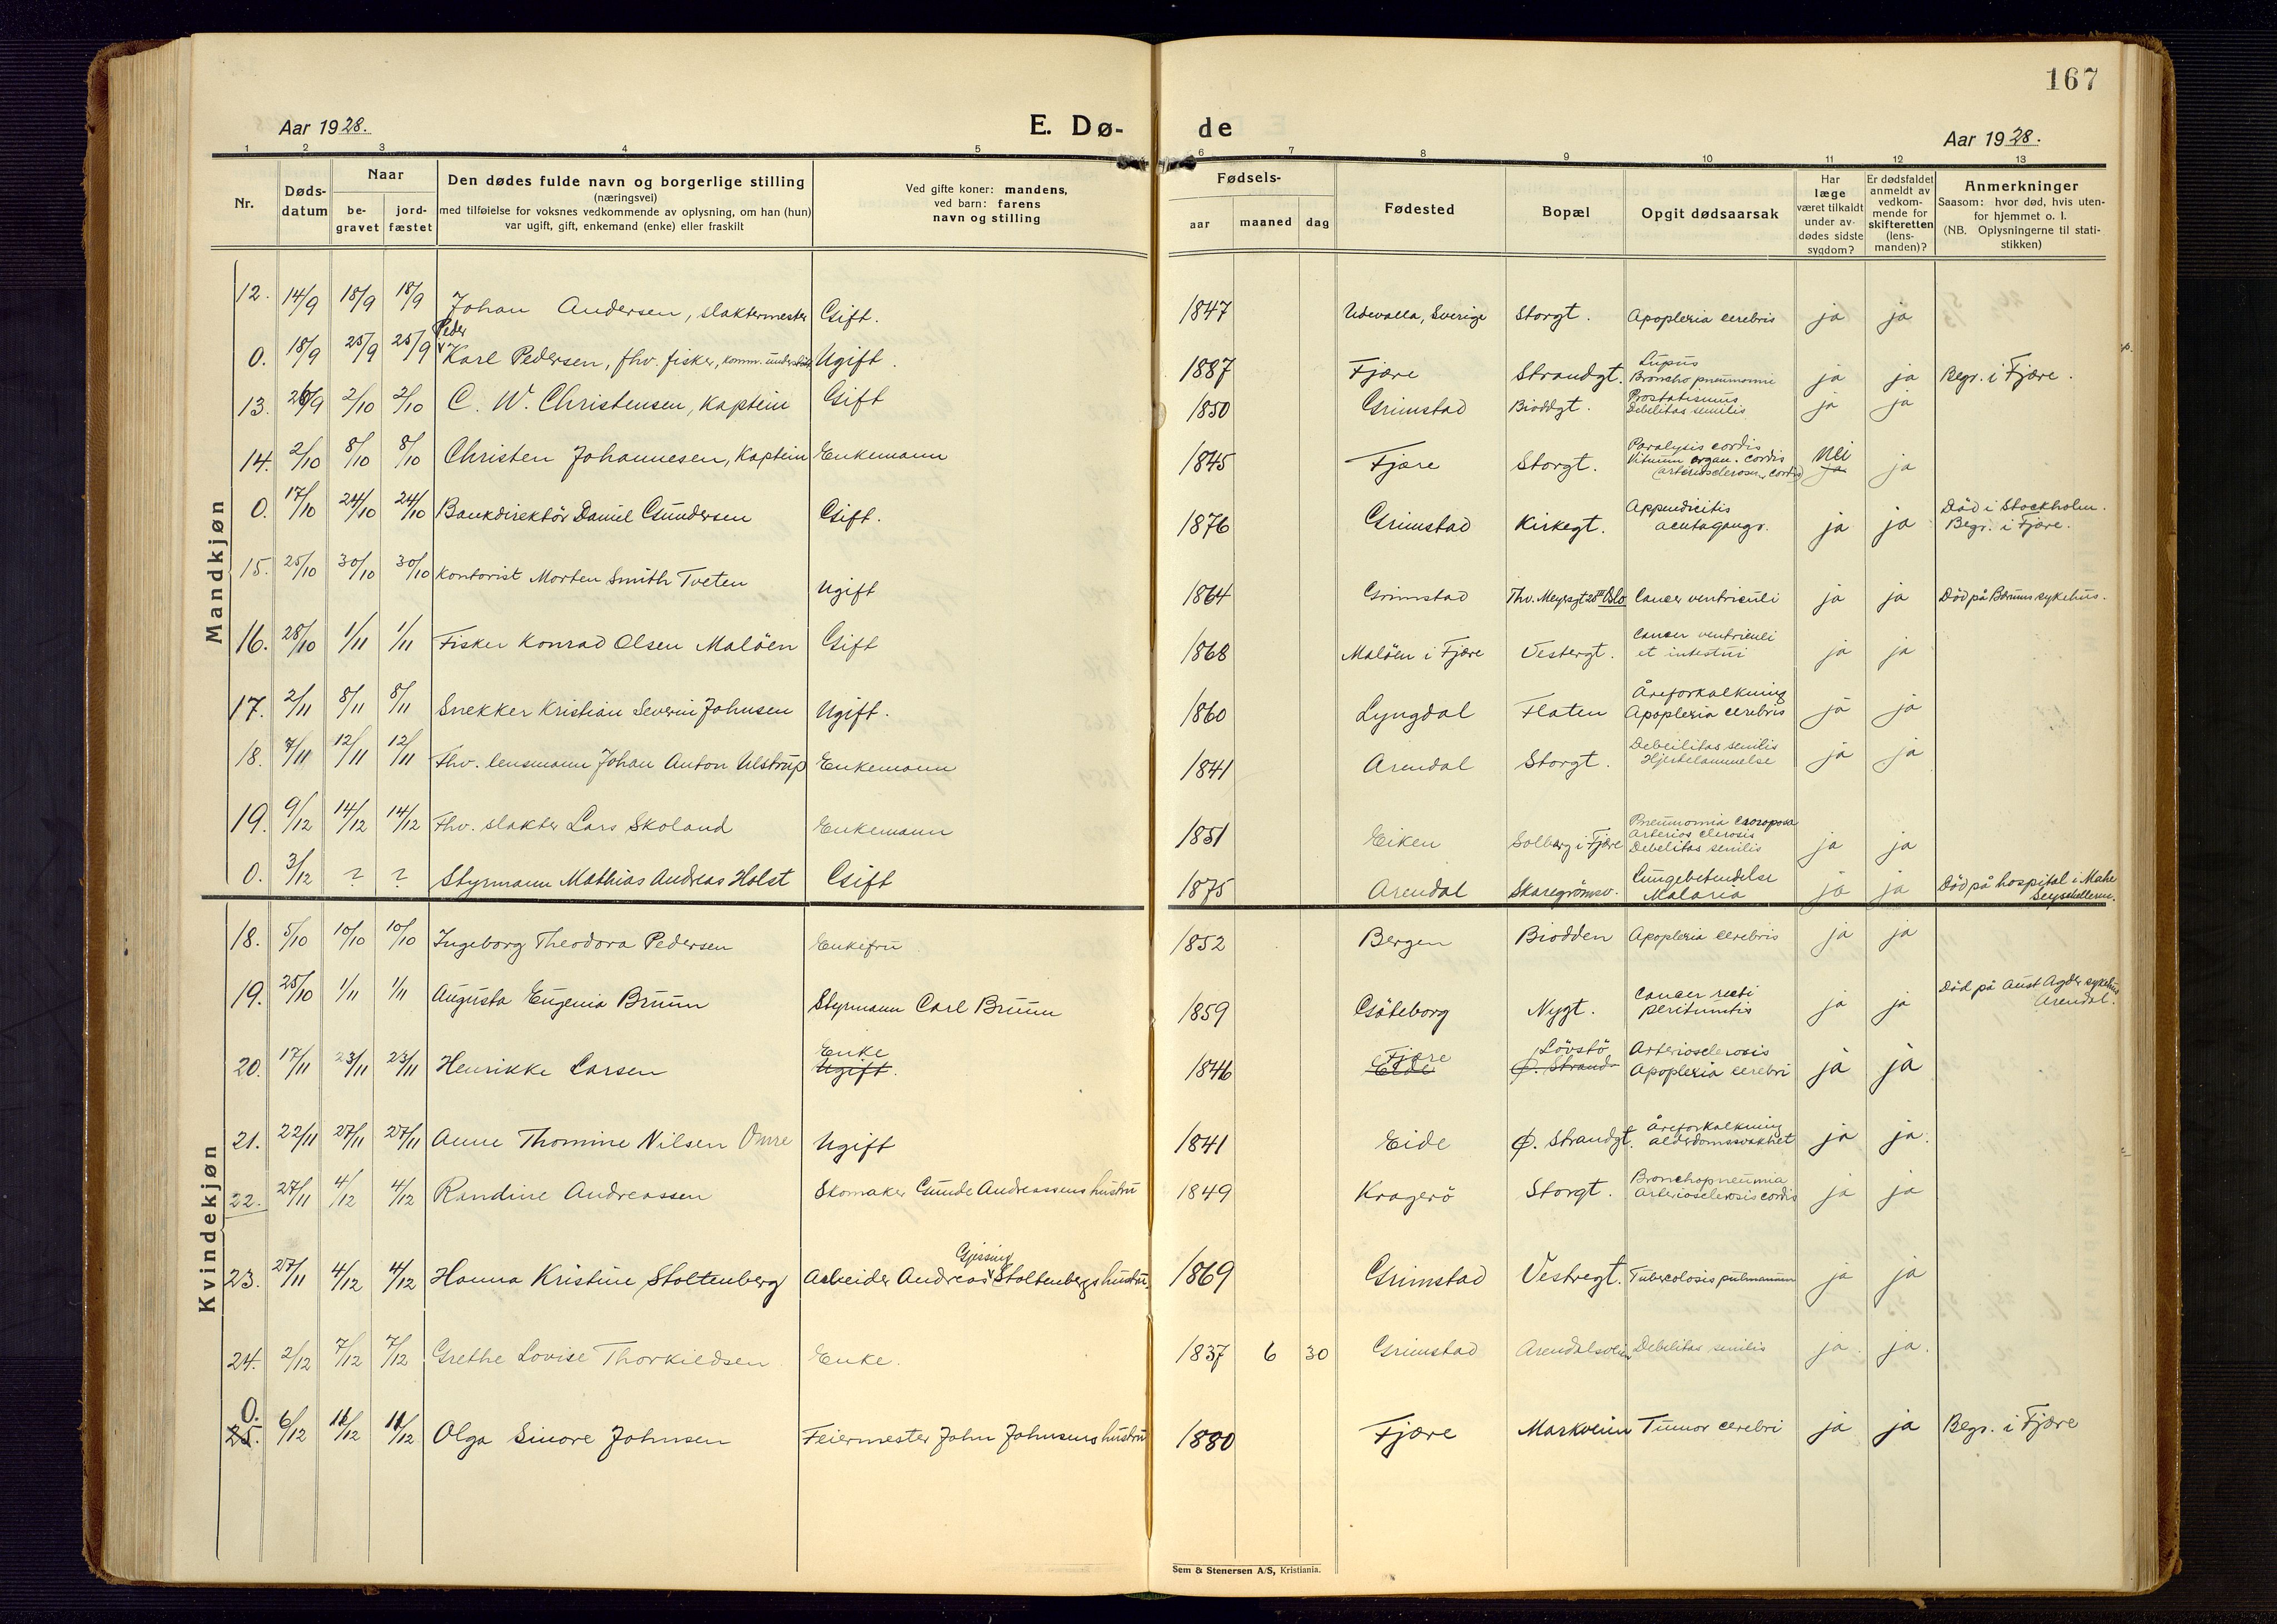 167
Aar 1928.
E. Dø-
de
Aar 1928.
1 2 3 4 5 6 7 8 9 10 11 12 13
Nr.
Døds-
datum
Naar
be-
gravet
jord-
fæstet
Den dødes fulde navn og borgerlige stilling
(næringsvei)
med tilføielse for voksnes vedkommende av oplysning, om han (hun)
var ugift, gift, enkemand (enke) eller fraskilt
Ved gifte koner: mandens,
ved barn: farens
navn og stilling
Fødsels-
aar
maaned
dag
Fødested
Bopæl
Opgit dødsaarsak
Har
læge
været tilkaldt
under av-
dødes sidste
sygdom?
Er dødsfaldet
anmeldt av
vedkom-
mende for
skifteretten
(lens-
manden)?
Anmerkninger
Saasom: hvor død, hvis uten-
for hjemmet o. l.
(NB. Oplysningerne til stati-
stikken)
Mandkjøn
12. 14/9 18/9 18/9 Johan Andersen, slaktermester Gift. 1847 Udevalla, Sverige Storgt. Apoplexia cerebris ja ja
Peder
0. 18/9 25/9 25/9 Karl Pedersen, fhv. fisker, komm. underst. Ugift. 1887 Fjære Strandgt. Lupus Bronchopneumoni ja ja Begr. i Fjære.
13. 26/9 2/10 2/10 C. W. Christensen, kaptein Gift 1850 Grimstad Bioddgt. Prostatismus Debelitas senilis ja ja
14. 2/10 8/10 8/10 Christen Johannesen, kaptein Enkemann 1845 Fjære Storgt. Paralysis cordis Vitium organ. cordis (arteriosclerosis cordis) nei ja ja
0. 17/10 24/10 24/10 Bankdirektör Daniel Gundersen Gift. 1876 Grimstad Kirkegt. Appendicitis acuta gangr. ja ja Död i Stockholm. Begr. i Fjære.
15. 25/10 30/10 30/10 Kontorist Morten Smith Tveten Ugift 1864 Grimstad Thv. Meyersgt 28 III Oslo Cancer ventriculi ja ja Död på Bærums sykehus.
16. 28/10 1/11 1/11 Fisker Konrad Olsen Malöen Gift 1868 Malöen i Fjære Vestergt. Cancer ventriculi et intestini ja ja
17. 2/11 8/11 8/11 Snekker Kristian Severin Johnsen Ugift. 1860 Lyngdal Flaten Åreforkalkning Apoplexia cerebris ja ja
18. 7/11 12/11 12/11 Fhv. lensmann Johan Anton Ulstrup Enkemann 1841 Arendal Storgt. Debeilitas senilis Hjertelammelse ja ja
19. 9/12 14/12 14/12 Fhv. slakter Lars Skoland Enkemann 1851 Eiken Solberg i Fjære Pneumonia Arterios clerosis Debelitas senilis ja ja
0. 3/12 ? ? Styrmann Mathias Andreas Holst Gift 1875 Arendal Skaregrömsv. Lungebetendelse Malaria ja ja Död på hospital i Mahe Seyschellerne.
Kvindekjøn
18. 5/10 10/10 10/10 Ingeborg Theodora Pedersen Enkefru 1852 Bergen Biodden Apoplexia cerebris ja ja
19. 25/10 1/11 1/11 Augusta Eugenia Bruun Styrmann Carl Bruun 1859 Göteborg Nygt. Cancer recti peritunitis ja ja Död på Aust Agder sykehus Arendal.
20. 17/11 23/11 23/11 Henrikke Larsen Enke Ugift. 1846 Fjære Eide Lövstö Ø. Strand- Arteriosclerosis Apoplexia cerebri ja ja
21. 22/11 27/11 27/11 Anne Thomine Nilsen Omre Ugift 1841 Eide Ø. Strandgt. Åreforkalkning alderdomssvakhet ja ja.
22. 27/11 4/12 4/12 Randine Andreassen Skomaker Gunde Andreassens hustru 1849 Kragerö Storgt. Bronchopneumia Arteriosclerosis cordis ja ja
23. 27/11 4/12 4/12 Hanna Kristine Stoltenberg Arbeider Andreas Gjessing Stoltenbergs hustru. 1869 Grimstad Vestregt. Tubercolosis pulmanum ja ja
24. 2/12 7/12 7/12 Grethe Lovise Thorkildsen Enke. 1837 6 30 Grimstad Arendalsveien Debelitas senilis ja. ja.
0. 25. 6/12 11/12 11/12 Olga Sinore Johnsen Feiermester John Johnsens hustru 1880 Fjære Markveien Tumor cerebri ja ja Begr. i Fjære
Sem & Stenersen A/S, Kristiania.